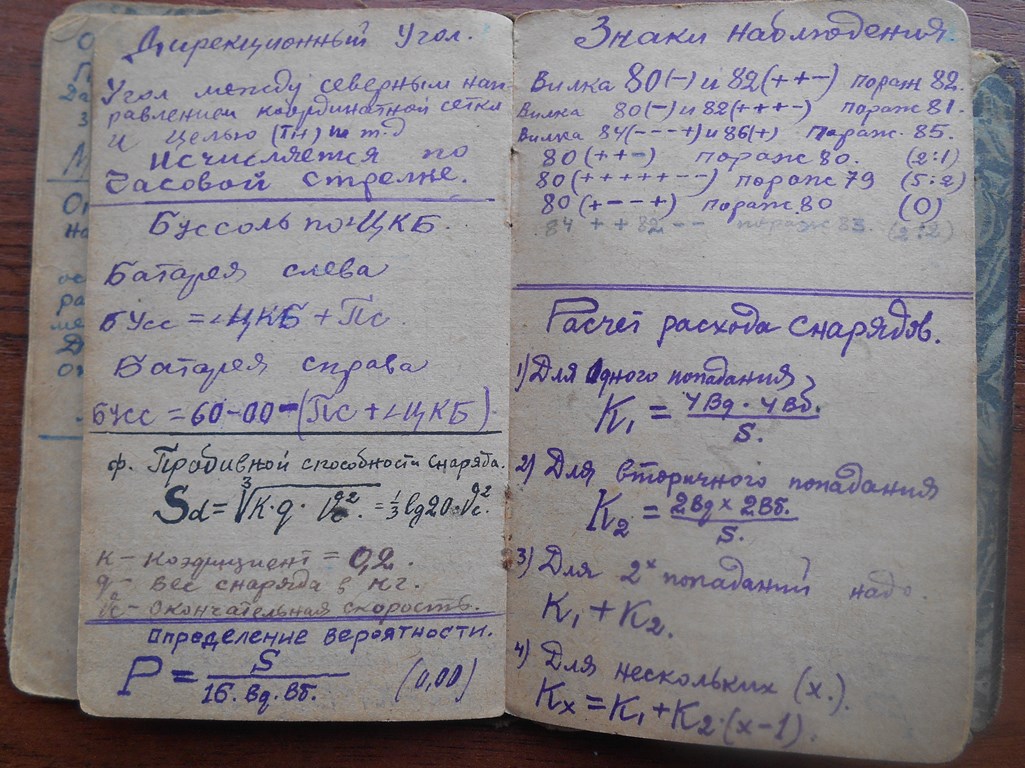 Дирекционный Угол.
Угол между северным нап-
равлением координатной сетки
и целью (ТН) и т.д
Исчисляется по
часовой стрелке.
Буссоль по ∠ЦКБ.
Батарея слева
БУсс = ∠ЦКБ + Пс.
Батарея справа
БУсс = 60-00-(Пс + ∠ЦКБ).
ф. Пробивной способности снаряда.
Sd = ∛K·q·Vc². = ⅓ lg20·Vc².
К - Коэфициент = 0,2.
q - вес снаряда в кг.
Vc - Окончательная скорость.
Определение вероятности.
P = S / 16. Вд. Вб. (0,00)
Знаки наблюдения.
Вилка 80(-) и 82(++-) пораж 82.
Вилка 80(-) и 82(+++-) пораж 81.
Вилка 84(---+) и 86(+) Пораж. 85.
80(++-) пораж 80. (2:1)
80(+++++--) пораж 79 (5:2)
80(+--+) пораж 80 (0)
84 ++ 82 -- пораж 83. (2:2)
Расчет расхода снарядов.
1) Для Одного попадания
K₁ = 4Вд. 4Вб. / S.
2) Для вторичного попадания
K₂ = 2Вд × 2Вб. / S.
3) Для 2ˣ попаданий надо.
K₁ + K₂.
4) Для нескольких (x.).
Kx = K₁ + K₂·(x-1).